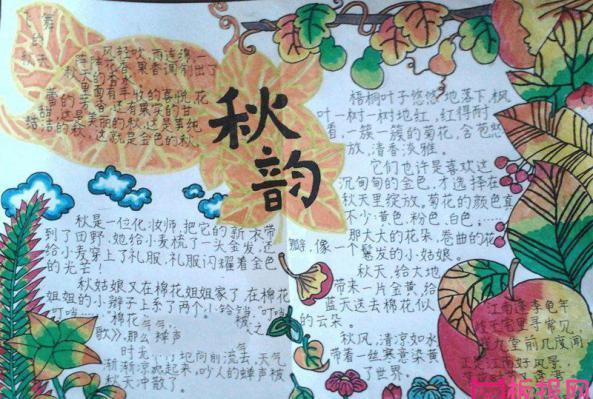 飞舞
的
秋天
风轻吹,雨连绵,一
阵阵花香、果香调制出了
秋天的香水。
里面有丰收的喜悦,花
蕾的芳香,还有果实的甘
甜,这是美丽的秋,这是单纯
皓洁的秋,这就是金色的秋。
秋韵
梧桐叶子悠悠地落下,枫
叶一树一树地红,红得耐
看,一簇一簇的菊花,含苞怒
放,清香淡雅。
它们也许是喜欢这
沉甸甸的金色,才选择在
秋天里绽放,菊花的颜色真
不少:黄色,粉色,白色……
那大大的花朵,卷曲的花
瓣,像一个鬈发的小姑娘。
秋天,给大地
带来一片金黄,给
蓝天送去棉花似
的云朵。
秋风,清凉如水
带着一丝寒意染黄
了世界。
秋是一位化妆师,把它的新衣带
到了田野,她给小麦梳了一头金发,还
给小麦穿上了礼服,礼服闪耀着金色
的光芒!
秋姑娘又在棉花姐姐家了,在棉花
姐姐的小辫子上系了两个小铃铛,"叮当
叮当……"
棉花
歌》,那么蝉声
地向前流去,天气
渐渐凉爽起来,吵人的蝉声被
秋天冲散了。
江南逢李龟年
岐王宅里寻常见,
崔九堂前几度闻。
正是江南好风景,
板报网